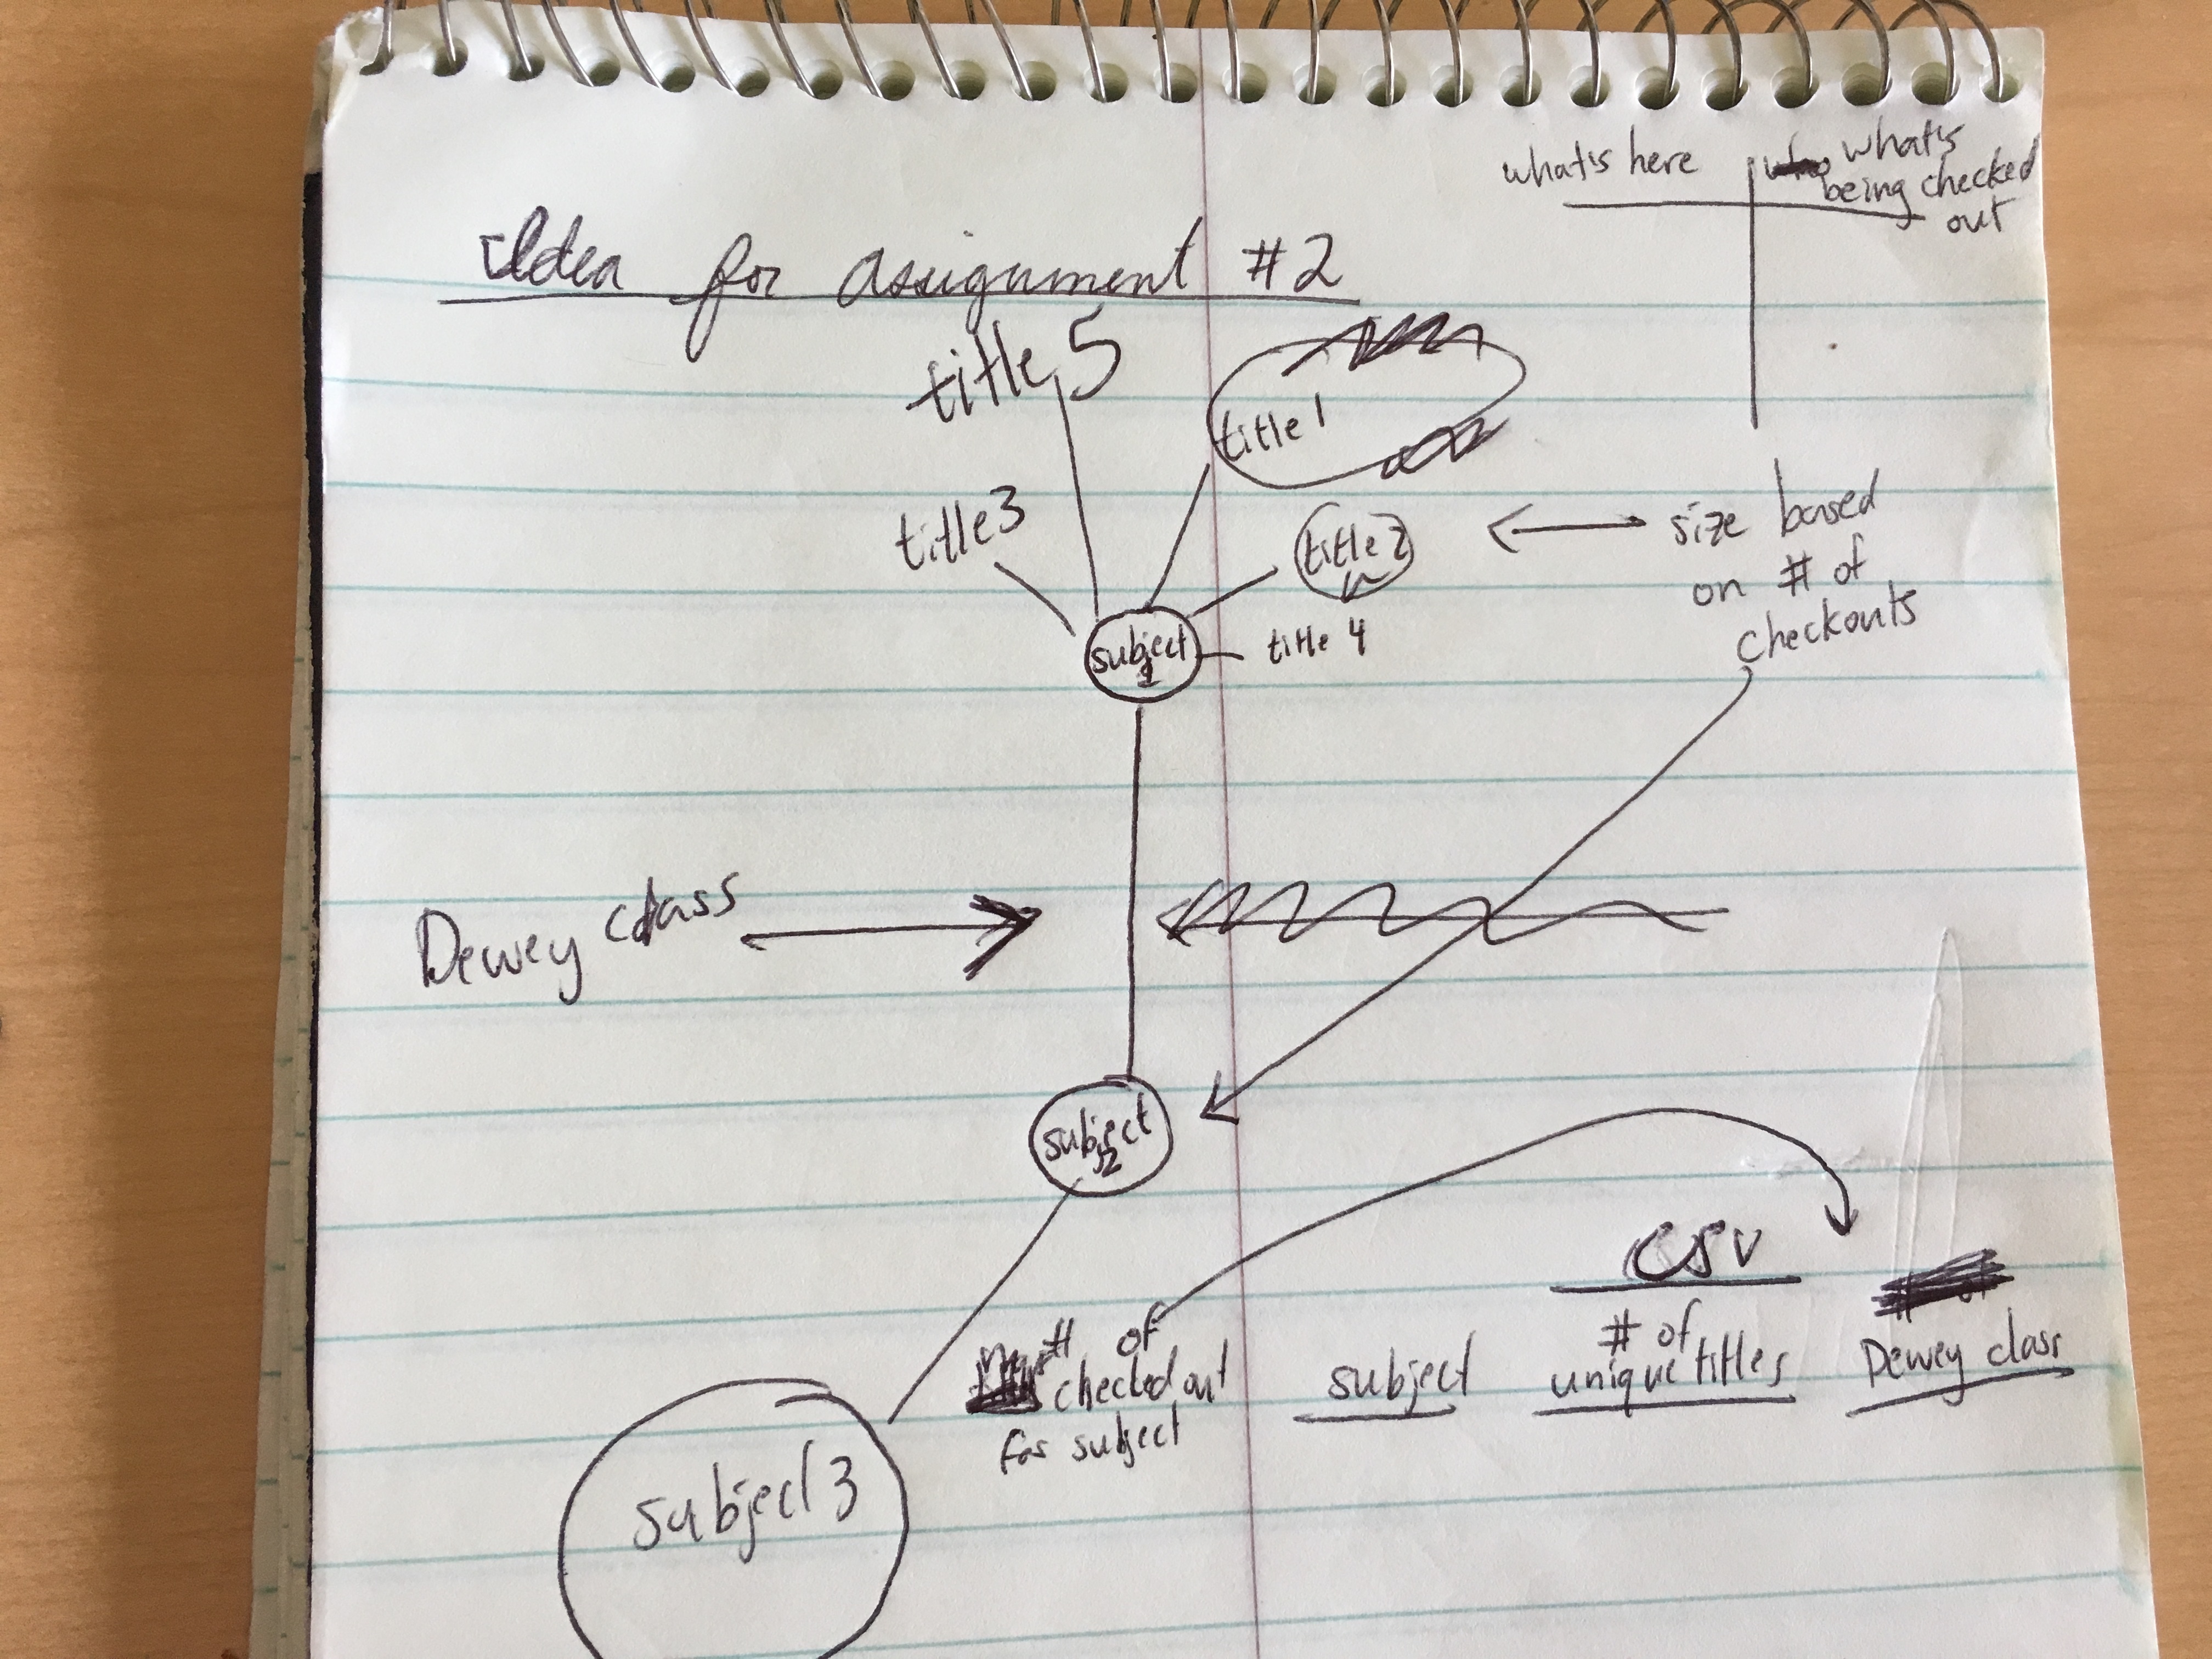 what's here
what's
being checked
out
Idea for assignment #2
title 5
title 1
title 3
title 2
size based
on # of
checkouts
subject
1
title 4
Dewey class
subject
2
CSV
# of
checked out
for subject
subject
# of
unique titles
Dewey class
subject 3